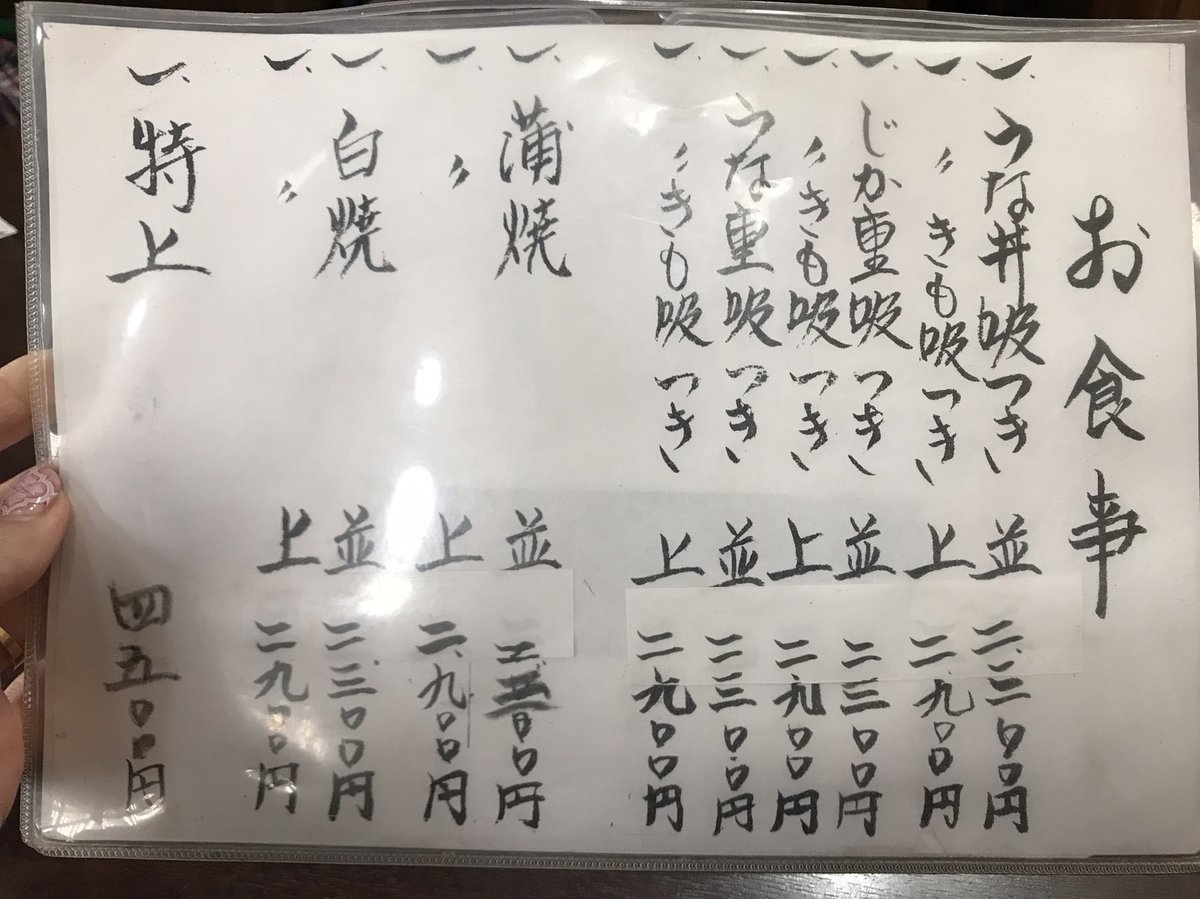 お食事
一、うな丼吸つき、並 二、三〇〇円
一、〃きも吸つき、上 二、九〇〇円
一、じか重吸つき、並 二三〇〇円
一、〃きも吸つき、上 二、九〇〇円
一、うな重吸つき、並 二三〇〇円
一、〃きも吸つき、上 二九〇〇円
一、蒲焼 並
一、〃 上 二、九〇〇円
一、白焼 並 二三〇〇円
一、〃 上 二九〇〇円
一、特上 四五〇〇円